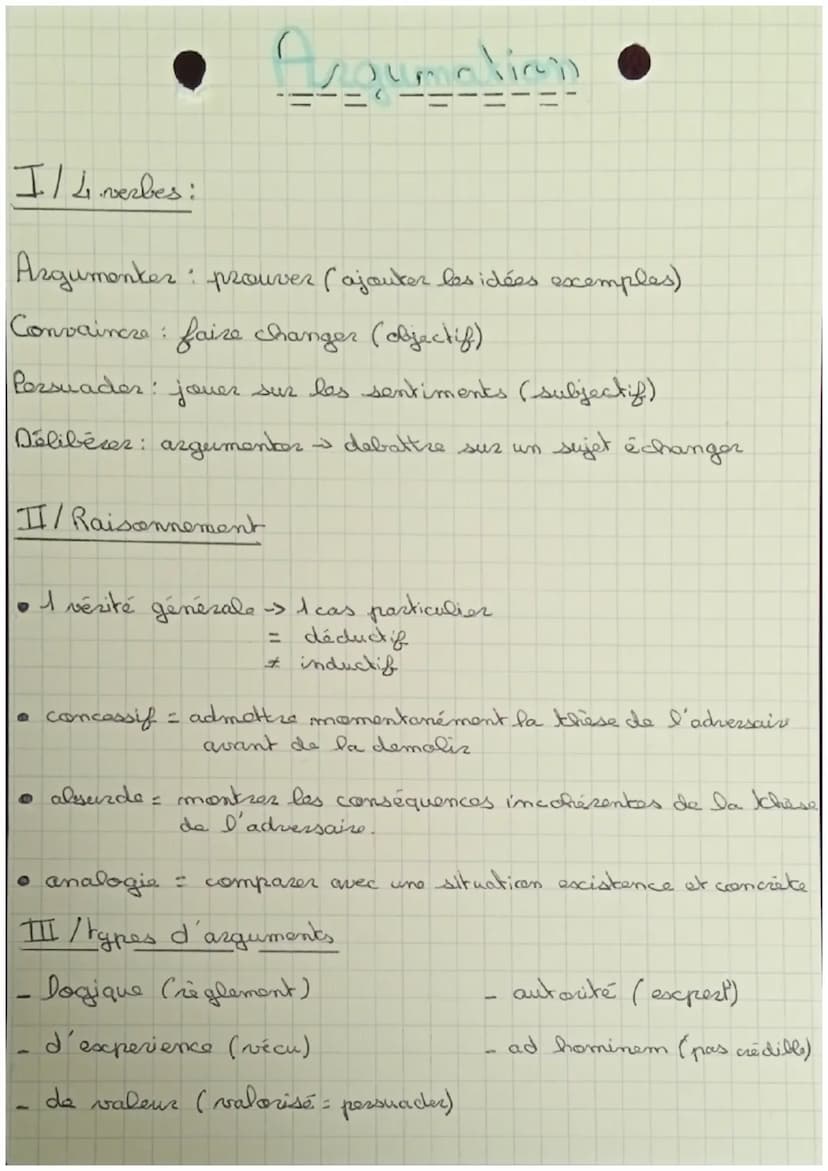 Argumation
I / 4 verbes :
Argumenter : prouver ( ajouter les idées exemples)
Convaincre : faire changer (objectif)
Persuader : jouer sur les sentiments (subjectif)
Délibérer : argumenter → debattre sur un sujet échanger
II / Raisonnement
• 1 vérité générale → 1 cas particulier
= déductif
≠ inductif
• concessif = admettre momentanément la thèse de l'adversair
avant de la demolir
• absurde = montrer les conséquences incohérentes de la thèse
de l'adversaire.
• analogie = comparer avec une situation existence et concrète
III / types d'arguments
- logique (règlement)
- autorité (expert)
- d'experience (vécu)
- ad hominem (pas crédible)
- de valeur (valorisé = persuader)